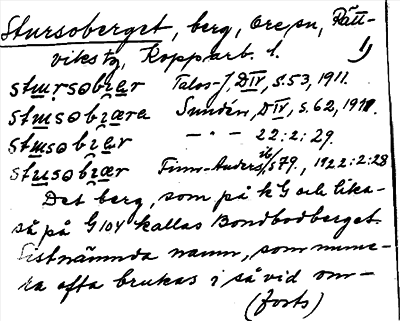 Stursoberget, berg, Ore sn, Rätt-
viks tg, Kopparb. l. 1)
stu̲rsobi̯ær Talos-J, D IV, s.53, 1911.
stu̲sobi̯æra Sundén, D IV, s.62, 1911.
stu̲sobi̯ær —"— 22:2:29.
stu̲sobi̯ær Finn-Anders, ib/s 79., 1922:2:28
Det berg, som på k G och lika-
så på G 104 kallas Bondbodberget.
Sistnämnda namn, som nume-
ra ofta brukas i så vid om-
(forts)